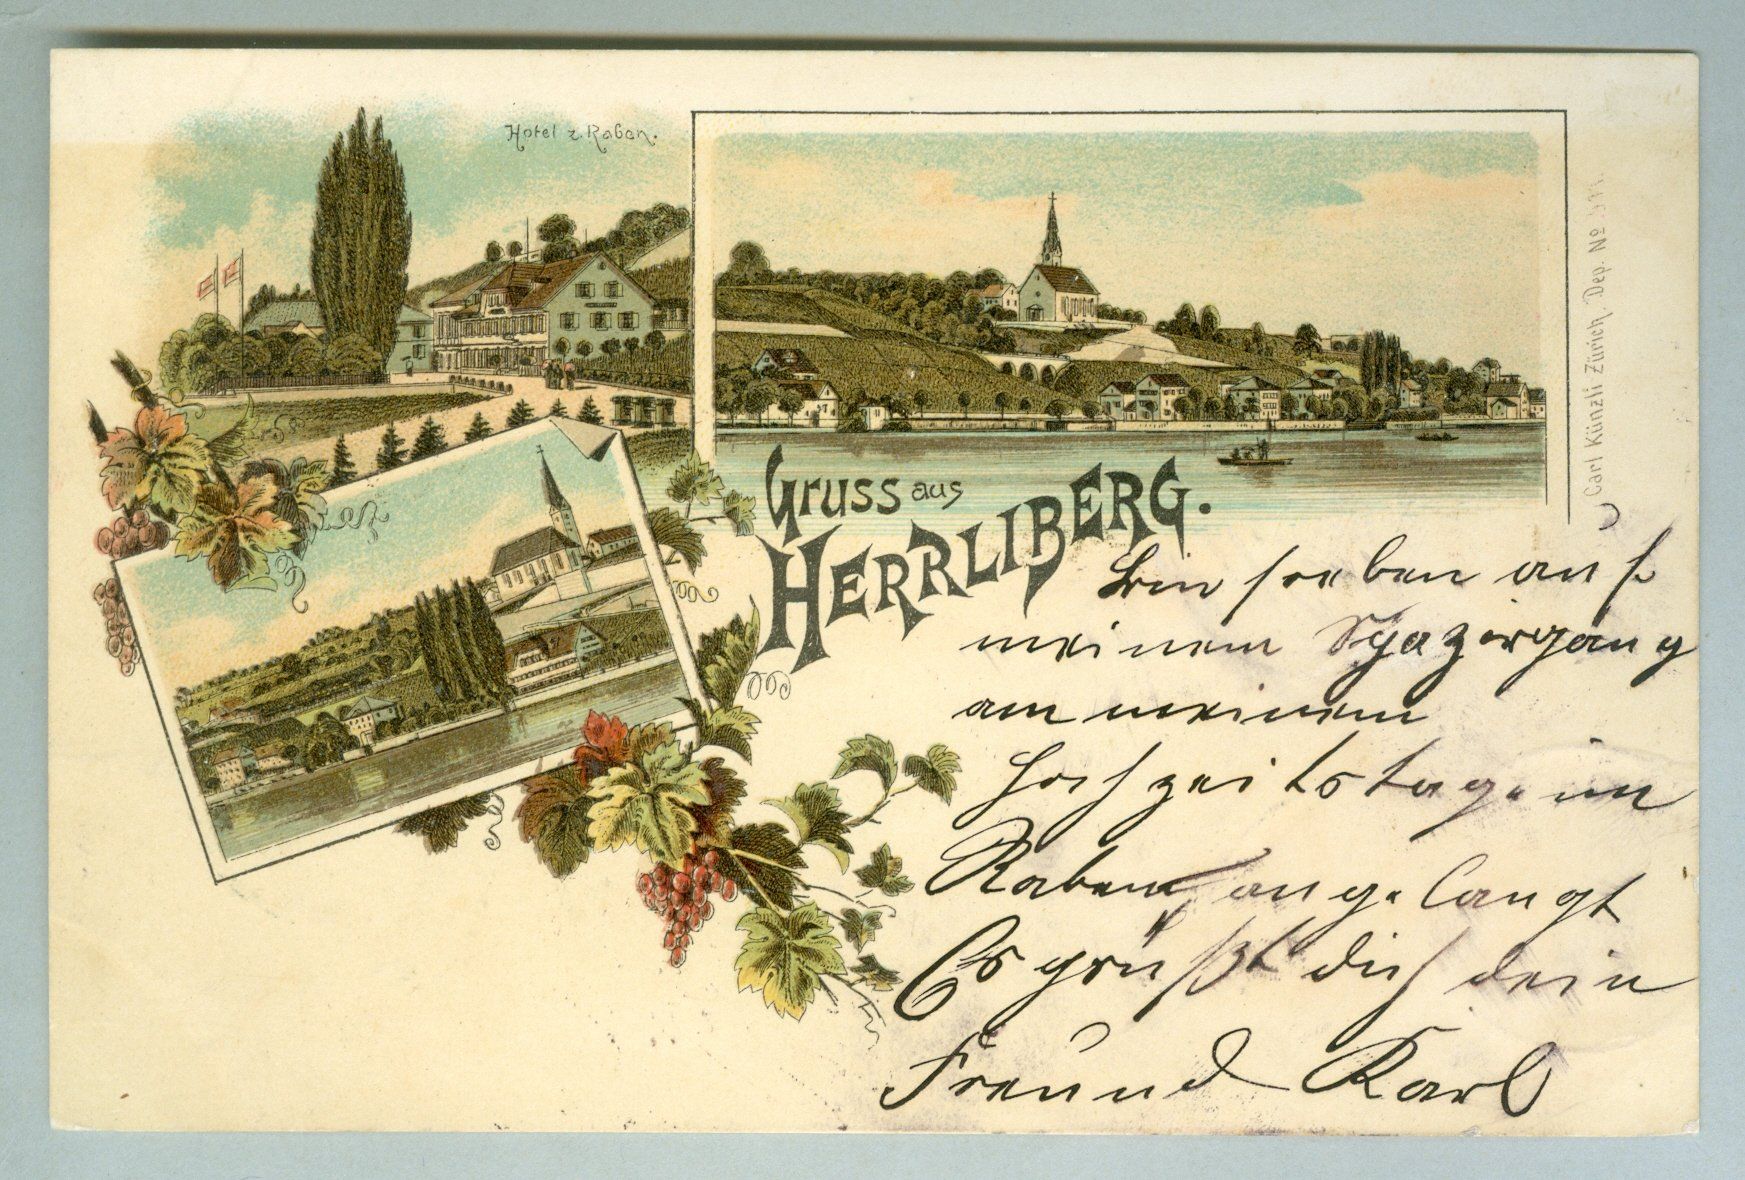 Hotel z. Raben.
Gruss aus
HERRLIBERG.
Carl Künzli Zürich. Dep. No
Bin soeben auf
meinem Spaziergang
an meinem
Hochzeitstage im
Raben angelangt
Es grüßt dich dein
Freund Karl